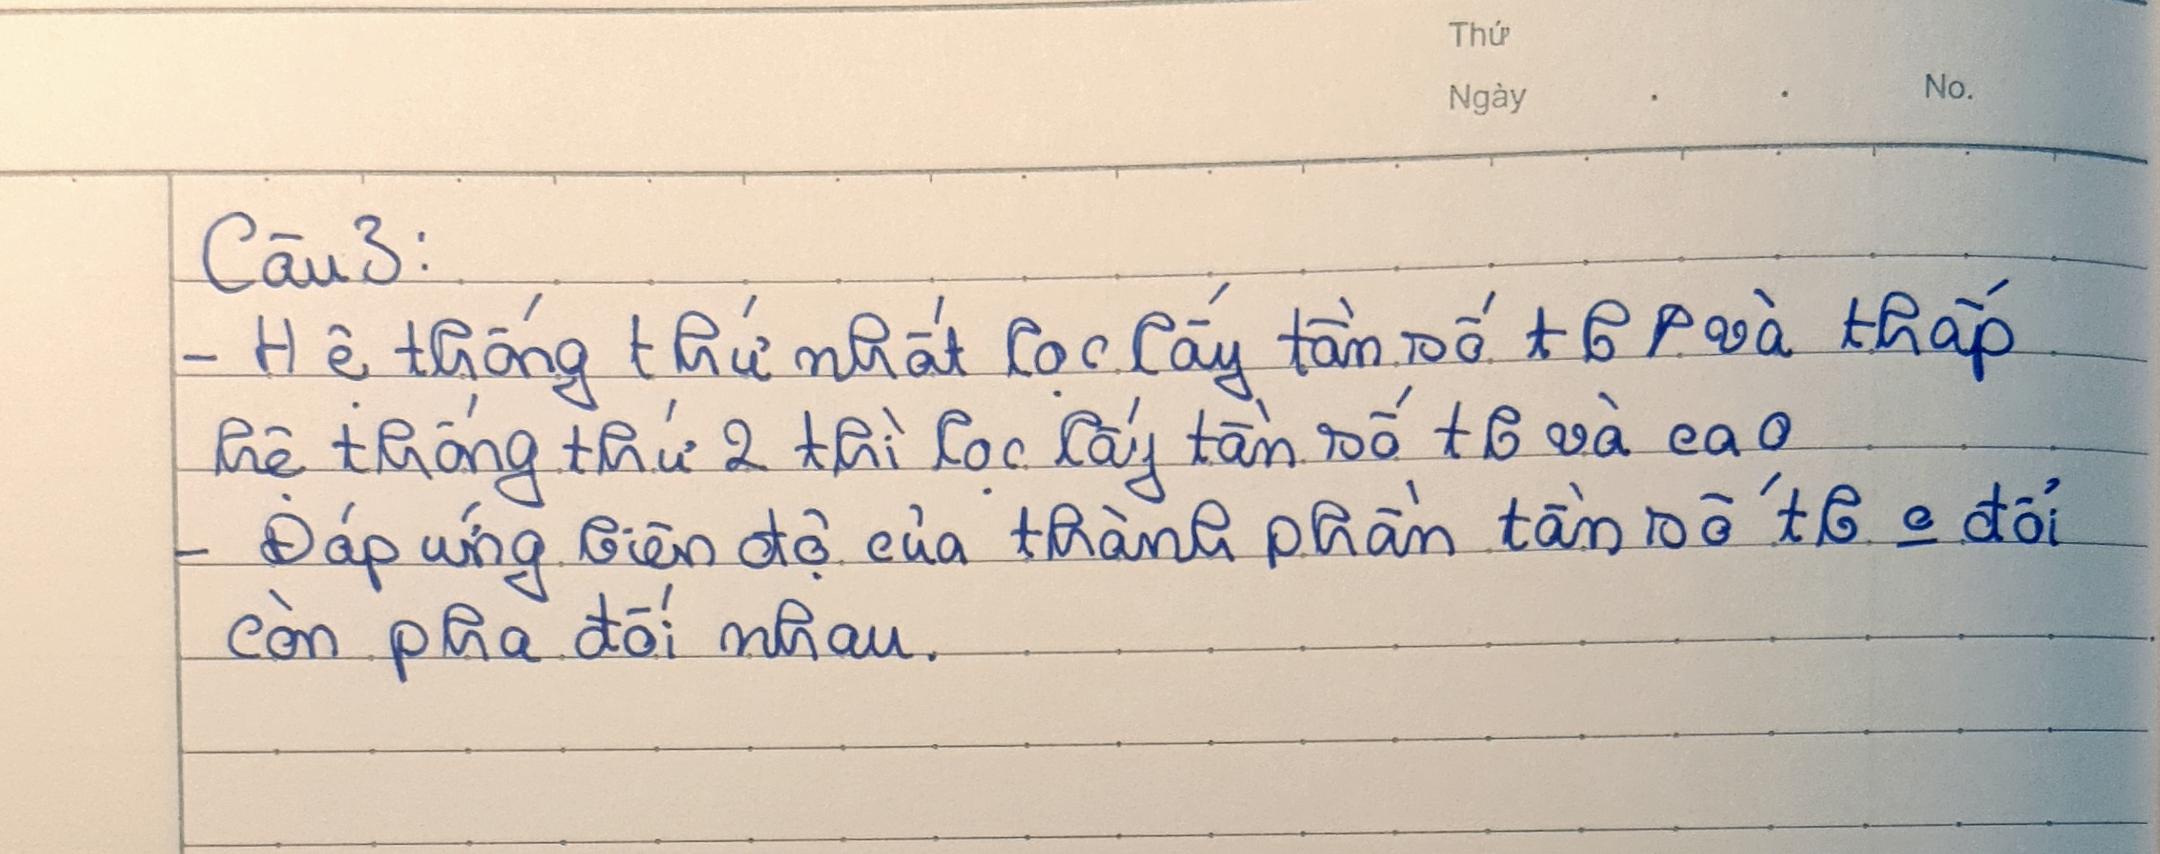 Thứ
Ngày . . No.
Câu 3:
- Hệ thống thứ nhất lọc lấy tần số tb và thấp
hệ thống thứ 2 thì lọc lấy tần số tb và cao
- Đáp ứng biên độ của thành phần tần số tb e đổi
còn pha đối nhau.